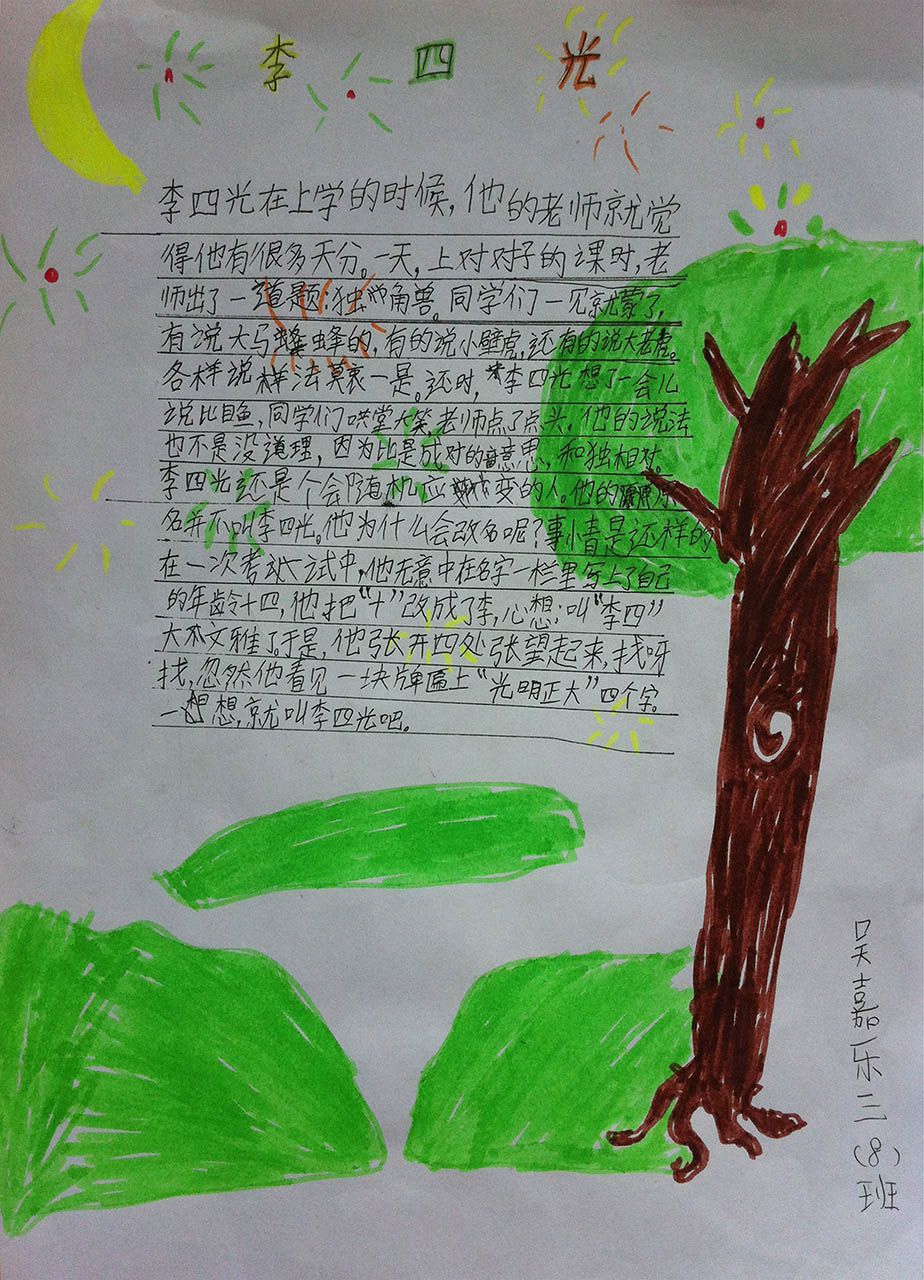 李四光
李四光在上学的时候,他的老师就觉
得他有很多天分。一天,上对对子的课时,老
师出了一道题:独角兽。同学们一见就蒙了,
有说大马蜂的,有的说小壁虎,还有的说大老虎。
各样说样法莫衷一是。还时,李四光想了一会儿
说比目鱼,同学们哄堂大笑,老师点了点头。他的说法
也不是没道理,因为比是成对的意思,和独相对。
李四光还是个会随机应变的人。他的原
名并不叫李四光。他为什么会改名呢?事小青是还样的
在一次考试中,他无意中在名字一栏里写上了自己
的年龄十四,他把“十”改成了李,心想:叫“李四”
大不文雅了于是,他张开四处张望起来,找呀
找,忽然他看见一块牌匾上“光明正大”四个字。
一想想,就叫李四光吧。
吴嘉乐三(8)班